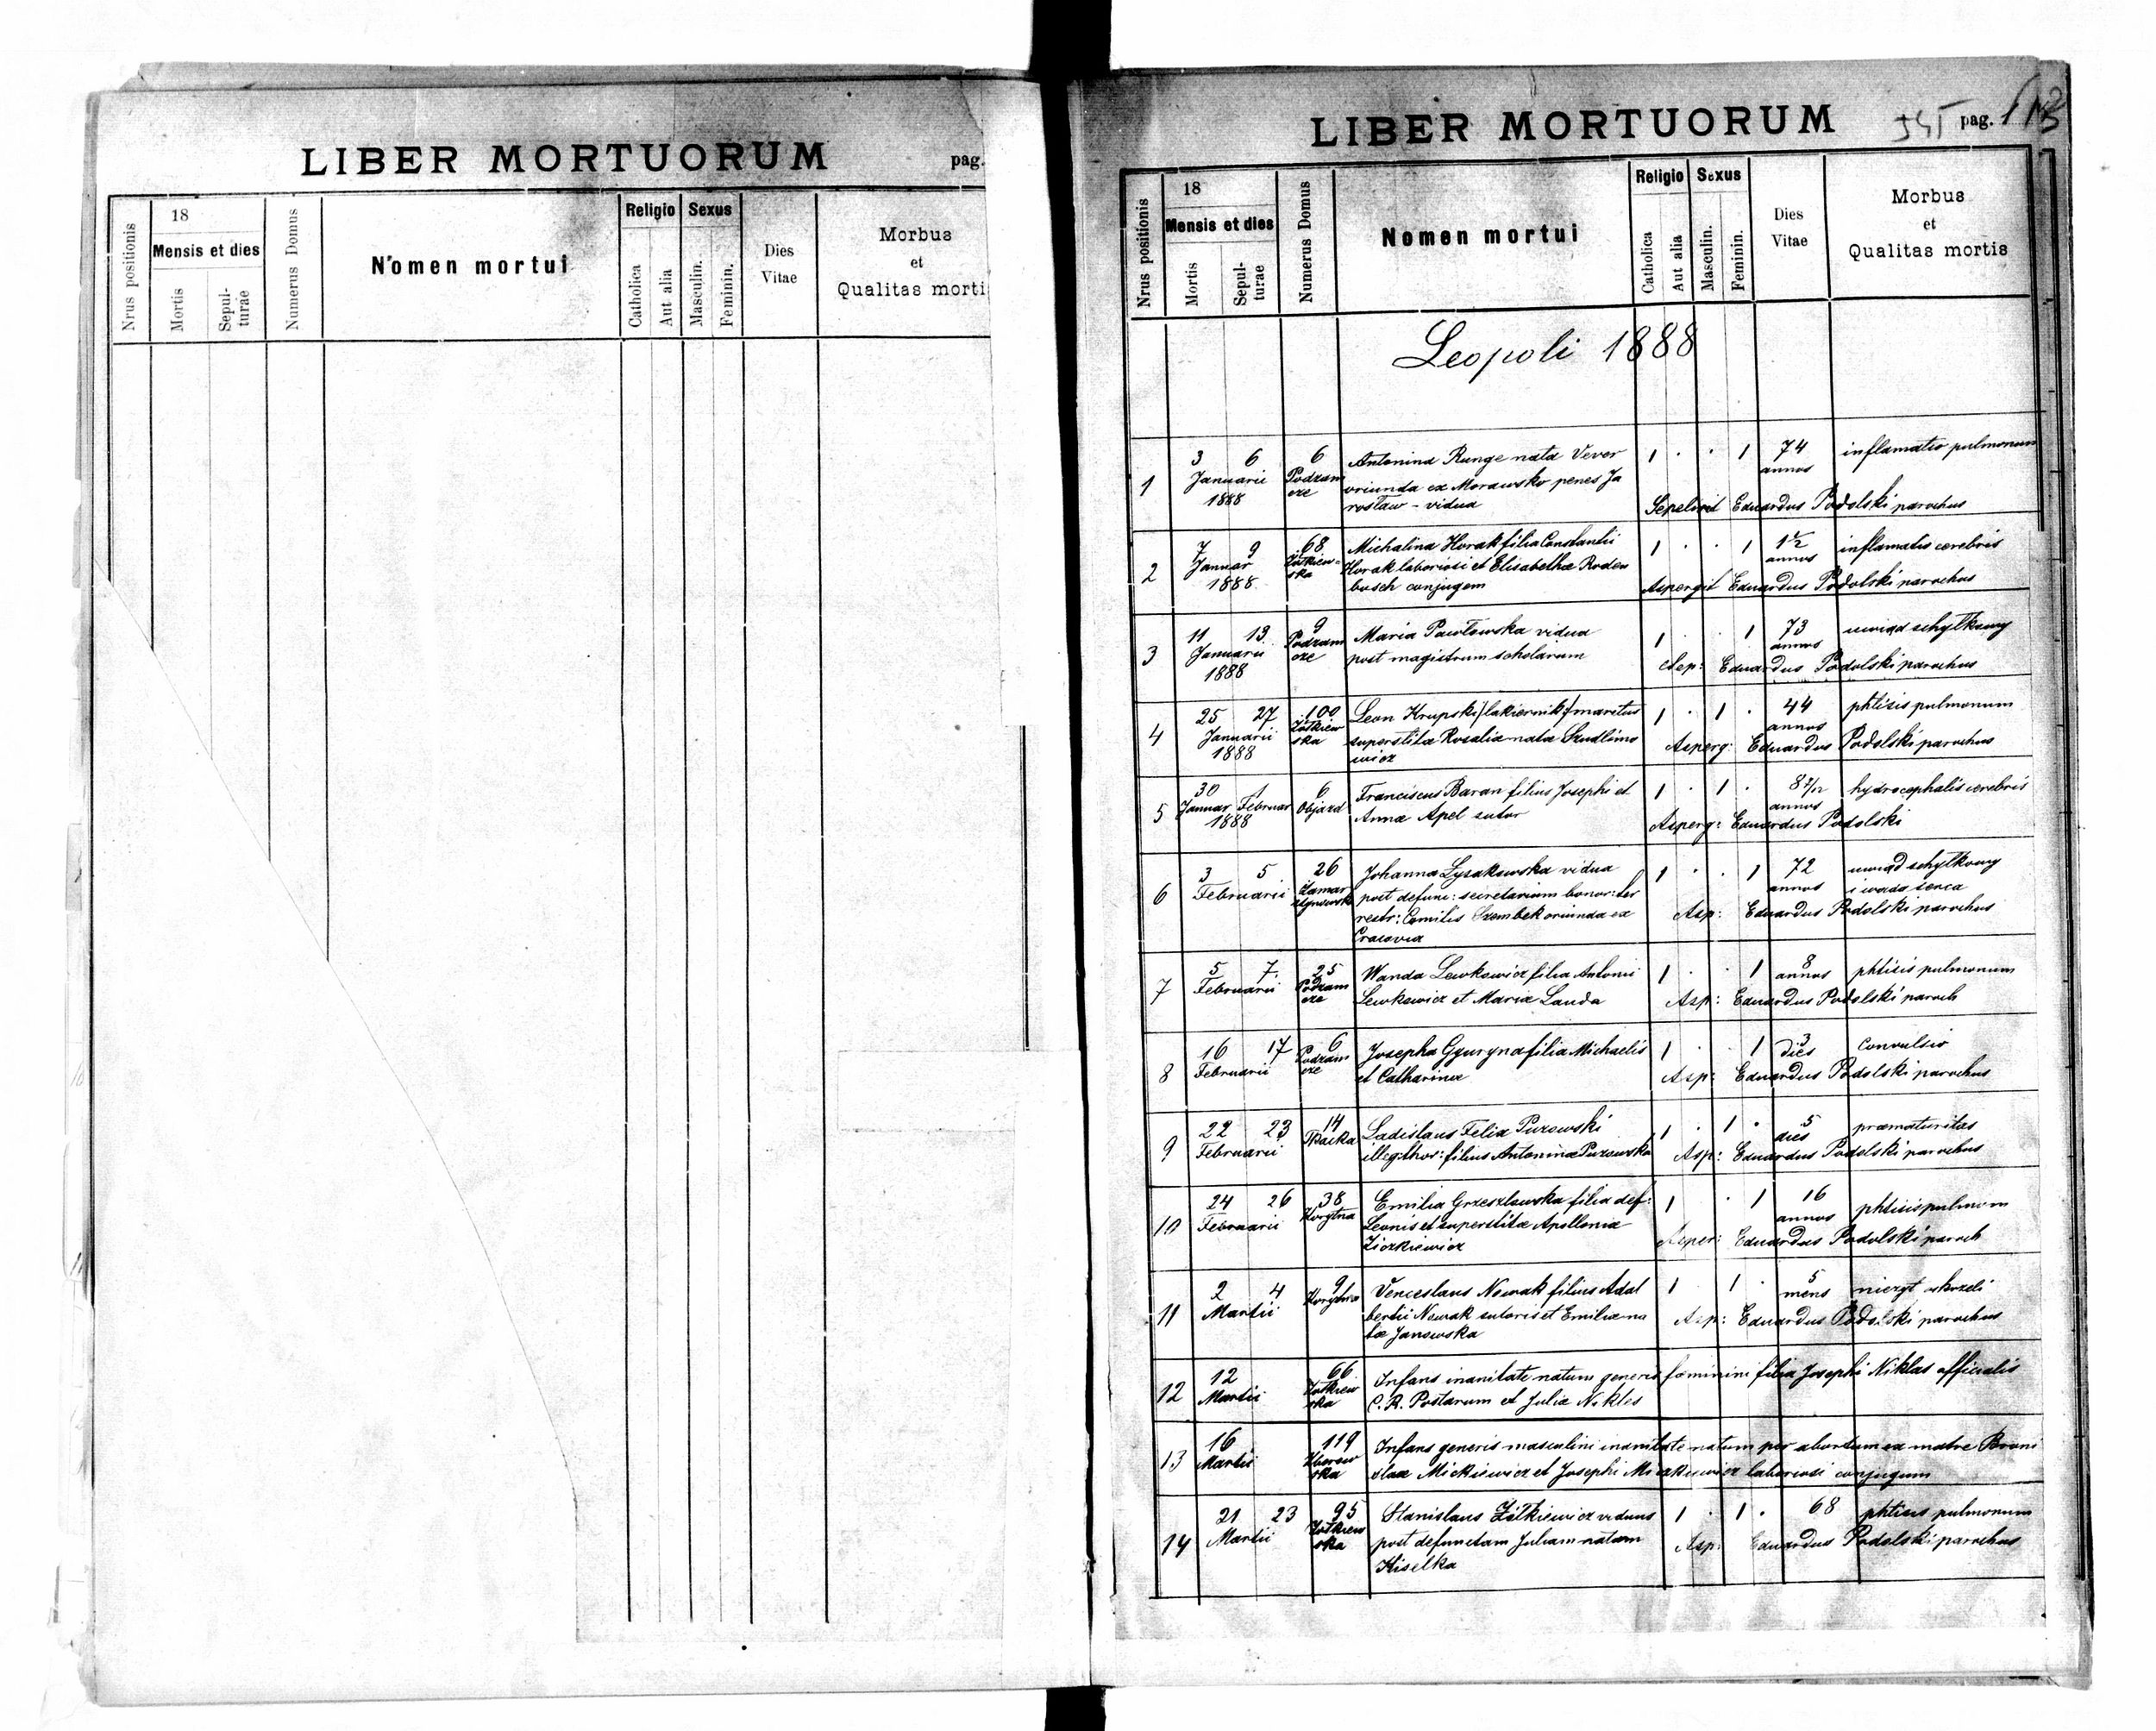 LIBER MORTUORUM
pag.
Nrus positionis
18
Mensis et dies
Mortis
Sepul-
turae
Numerus Domus
Nomen mortui
Religio
Catholica
Aut alia
Sexus
Masculin.
Feminin.
Dies
Vitae
Morbus
et
Qualitas morti
LIBER MORTUORUM
pag.
Nrus positionis
18
Mensis et dies
Mortis
Sepul-
turae
Numerus Domus
Nomen mortui
Religio
Catholica
Aut alia
Sexus
Masculin.
Feminin.
Dies
Vitae
Morbus
et
Qualitas mortis
Leopoli 1888
1 3 6 Januarii 1888 6 Podzam cze
Antonina Runge nata Vever
oriunda ex Morawsko penes Ja
rosław - vidua
1 . . 1 74 annos inflamatio pulmonum
Sepelivit Eduardus Podolski parochus
2 7 9 Januar 1888 68 Żółkiew-
ska
Michalina Horak filia Constantii
Horak laboriosi et Elisabethæ Roden
busch conjugem
1 . . 1 1½ annos inflamatio cerebris
Aspergit Eduardus Podolski parochus
3 11 13 Januarii 1888 9 Podzam cze
Maria Pawłowska vidua
post magistrum scholarum
1 . . 1 73 annos uwiąd schyłkowy
Asp: Eduardus Podolski parochus
4 25 27 Januarii 1888 100 Żółkiew
ska
Leon Krupski /lakiernik/ maritus
superstitæ Rosaliæ natæ
wicz
1 . 1 . 44 annos phtisis pulmonum
Asperg: Eduardus Podolski parochus
5 30 1 Januar Februar 1888 6 Objazd
Franciscus Baran filius Josephi et
Annæ Apel sutor
1 . 1 . annos hydrocephalis cerebris
Asperg: Eduardus Podolski
6 3 5 Februarii 26 Zamar
stynowska
Johanna Łysakowska vidua
post defunc: secretarium bonor: ter
restr: Comitis Szembek oriunda ex
Cracovia
1 . . 1 72 annos uwiąd schyłkowy
i wada serca
Asp: Eduardus Podolski parochus
7 5 7 Februarii 25 Podzam
cze
Wanda Lewkowicz filia Antonii
Lewkowicz et Mariæ Lauda
1 . . 1 8 annos phtisis pulmonum
Asp: Eduardus Podolski paroch
8 16 17 Februarii 6 Podzam
cze
Josepha Gyuryna filia Michaelis
et Catharinæ
1 . . 1 3 dies Convulsio
Asp: Eduardus Podolski parochus
9 22 23 Februarii 14 Tkacka
Ladislaus Felix Purowski
illeg. thor: filius Antoninæ Purowska
1 . 1 . 5 dies præmaturitas
Asp: Eduardus Podolski parochus
10 24 26 Februarii 38 Korytna
Emilia Grzeszlawska filia def:
Leonis et superstitæ Apolloniæ
Ziczkiewicz
1 . 1 16 annos phtisis pulmom
Asper: Eduardus Podolski paroch
11 2 4 Martii 9 Korytna
Venceslaus Nowak filius Adal
bertii Nowak sutoris et Emiliæ na
tæ Janowska
1 . 1 . 5 mens nieżyt oskrzeli
Asp: Eduardus Podolski parochus
12 12 Martii 66 Żółkiew
ska
Infans inanitate natum generis fœminini filia Josephi Niklas officialis
C. R. Postarum et Juliæ Nikles
13 16 Martii 119
ska
Infans generis masculini inanitate natum per abortum ex matre Broni
slaæ Mickiewicz et Josephi Mickiewicz laboriosi conjugum
14 21 23 Martii 95 Żółkiew
ska
Stanislaus Żółkiewicz viduus
post defunctam Juliam natam
Kisełka
1 . 1 . 68 phtisis pulmonum
Asp: Eduardus Podolski parochus